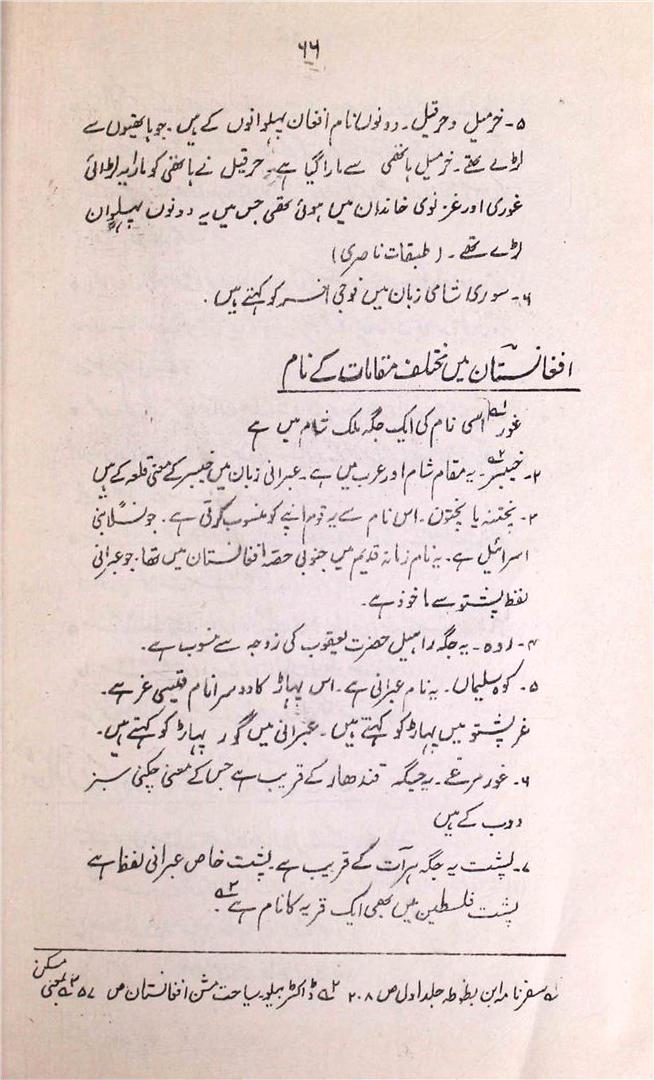 ۶۶
۵۔ خرمیل و حرقیل۔ دونوں نام افغان پہلوانوں کے ہیں۔ جو ہاتھیوں سے
لڑے تھے۔ خرمیل ہاتھی سے مارا گیا ہے۔ حرقیل نے ہاتھی کو مارا یہ لڑائی
غوری اور غزنوی خاندان میں ہوئی تھی جس میں یہ دونوں پہلوان
لڑے تھے۔ (طبقات ناصری)
۶۔ سوری شامی زبان میں فوجی افسر کو کہتے ہیں۔
افغانستان میں مختلف مقامات کے نام
غور اسی نام کی ایک جگہ ملک شام میں ہے
۲۔ خیبر۔ یہ مقام شام اور عرب میں ہے۔ عبرانی زبان میں خیبر کے معنی قلعہ کے ہیں
۳۔ پختنہ یا پختون۔ اس نام سے یہ قوم اپنے کو منسوب کرتی ہے۔ جو نسلاً بنی
اسرائیل ہے۔ یہ نام زمانہ قدیم میں جنوبی حصہ افغانستان میں تھا۔ جو عبرانی
لفظ پشتو سے ماخوذ ہے۔
۴۔ روہ۔ یہ جگہ راحیل حضرت یعقوب کی زوجہ سے منسوب ہے۔
۵۔ کوہ سلیماں۔ یہ نام عبرانی ہے۔ اس پہاڑ کا دوسرا نام قیسی غر ہے۔
غر پشتو میں پہاڑ کو کہتے ہیں۔ عبرانی میں گور پہاڑ کو کہتے ہیں۔
۶۔ غور مرغے۔ یہ جگہ قندھار کے قریب ہے جس کے معنی چکنی سبز
دوب کے ہیں
۷۔ پشت یہ جگہ ہرآت کے قریب ہے۔ پشت خاص عبرانی لفظ ہے
پشت فلسطین میں بھی ایک قریہ کا نام ہے۔
۱؎ سفرنامہ ابن بطوطہ جلد اول ص ۲۰۸ ۲؎ ڈاکٹر بیلو سیاحت مشن افغانستان ص ۵۷ ۳؎ بمعنی مسکن